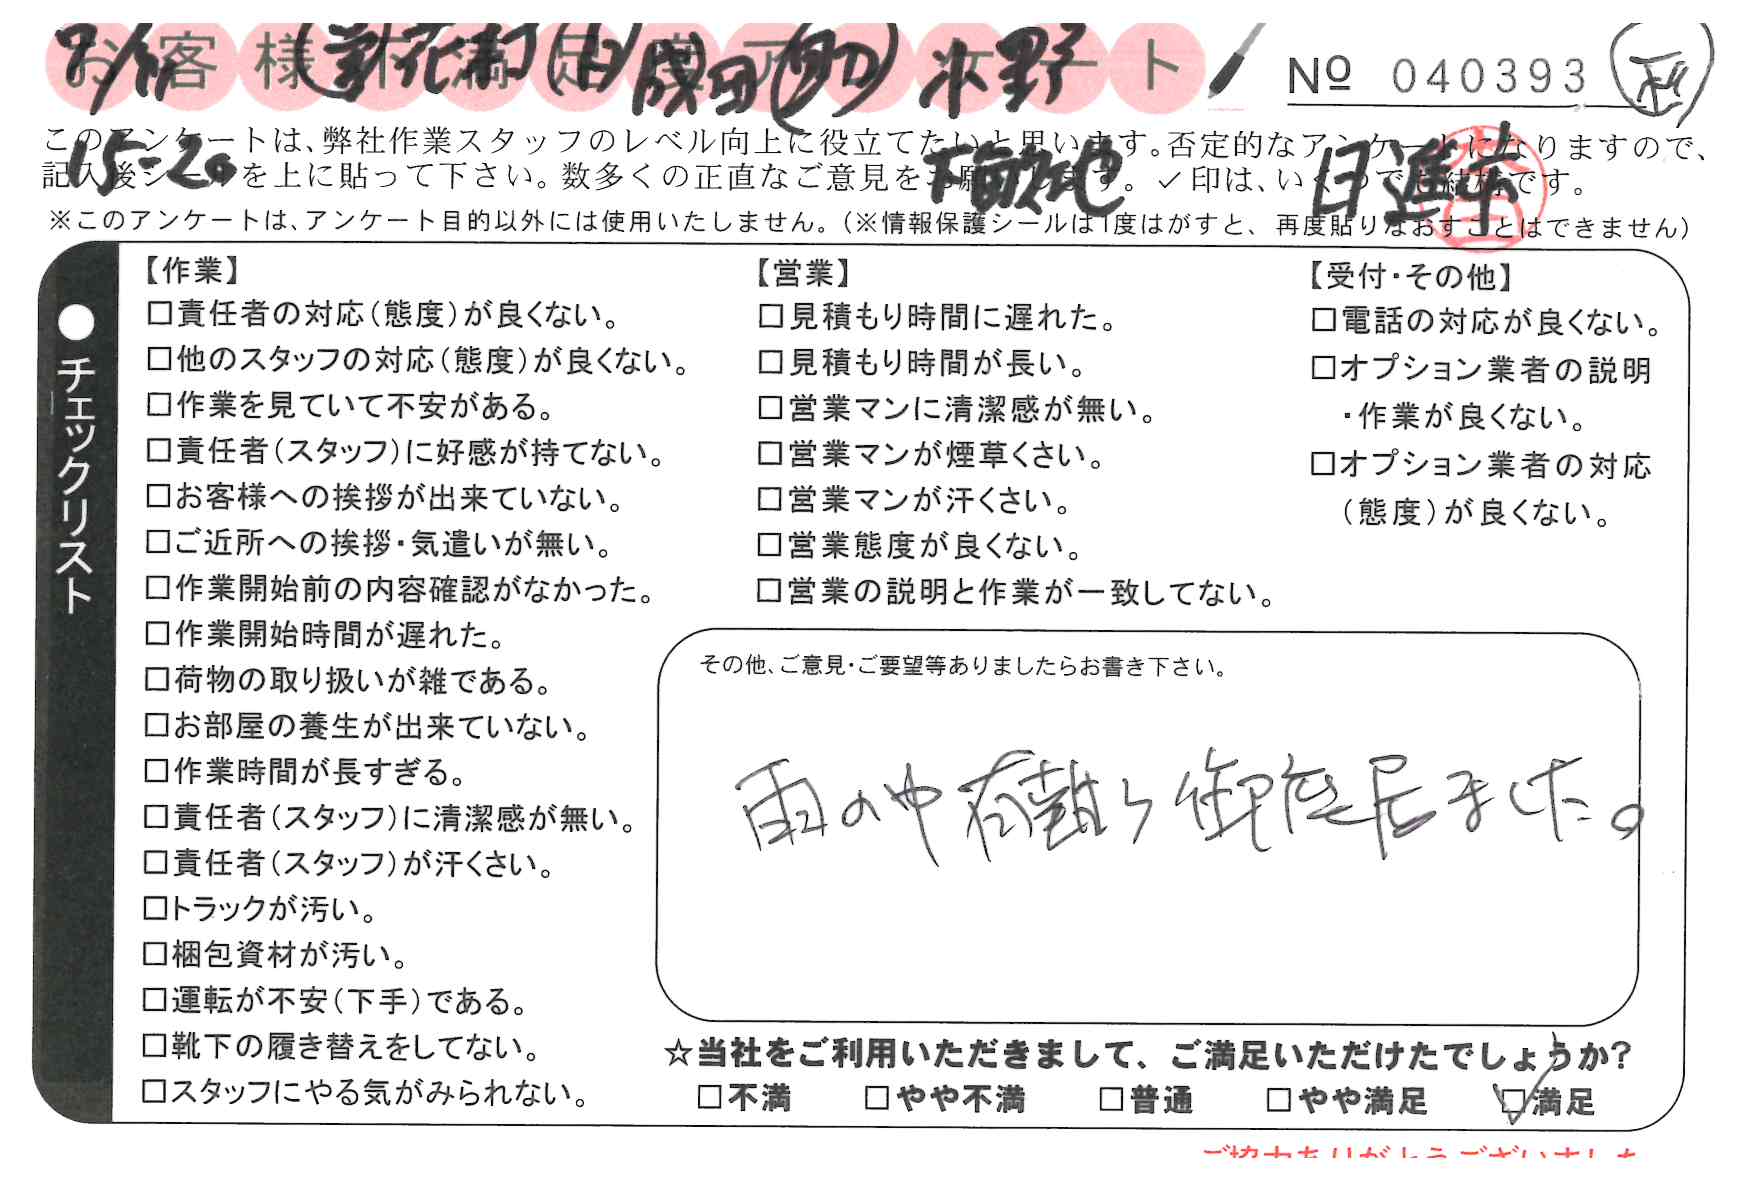 お客様不満足度アンケート
9/17 成田 水野
№ 040393
15=20 日進市
このアンケートは、弊社作業スタッフのレベル向上に役立てたいと思います。否定的なアンケートになりますので、
記入後シールを上に貼って下さい。数多くの正直なご意見をお願いします。✓印は、いくつでも結構です。
※このアンケートは、アンケート目的以外には使用いたしません。（※情報保護シールは1度はがすと、再度貼りなおすことはできません）
●チェックリスト
【作業】
□責任者の対応（態度）が良くない。
□他のスタッフの対応（態度）が良くない。
□作業を見ていて不安がある。
□責任者（スタッフ）に好感が持てない。
□お客様への挨拶が出来ていない。
□ご近所への挨拶・気遣いが無い。
□作業開始前の内容確認がなかった。
□作業開始時間が遅れた。
□荷物の取り扱いが雑である。
□お部屋の養生が出来ていない。
□作業時間が長すぎる。
□責任者（スタッフ）に清潔感が無い。
□責任者（スタッフ）が汗くさい。
□トラックが汚い。
□梱包資材が汚い。
□運転が不安（下手）である。
□靴下の履き替えをしてない。
□スタッフにやる気がみられない。
【営業】
□見積もり時間に遅れた。
□見積もり時間が長い。
□営業マンに清潔感が無い。
□営業マンが煙草くさい。
□営業マンが汗くさい。
□営業態度が良くない。
□営業の説明と作業が一致してない。
【受付・その他】
□電話の対応が良くない。
□オプション業者の説明
・作業が良くない。
□オプション業者の対応
（態度）が良くない。
その他、ご意見・ご要望等ありましたらお書き下さい。
雨の中有難う御座居ました。
☆当社をご利用いただきまして、ご満足いただけたでしょうか?
□不満 □やや不満 □普通 □やや満足 ☑満足
ご協力ありがとうございました